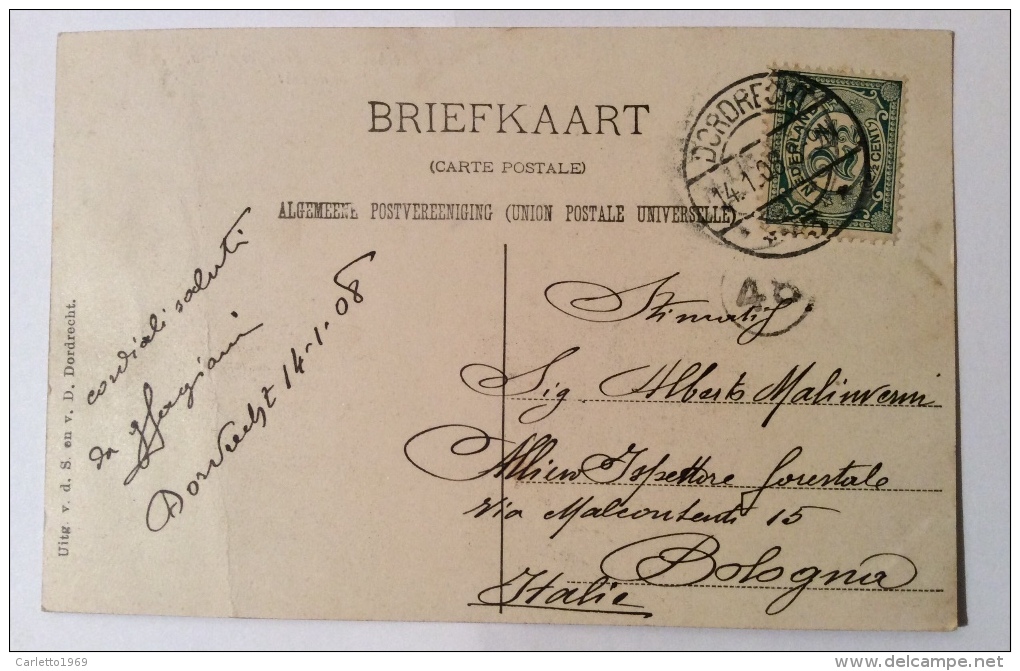 BRIEFKAART
(CARTE POSTALE)
ALGEMEENE POSTVEREENIGING (UNION POSTALE UNIVERSELLE)
DORDRECHT
14.1.08
NEDERLAND
2½
2½ CENT
40
Uitg v. d. S. en v. D. Dordrecht.
cordiali saluti
da
Dordrecht 14-1-08
Sig Alberto Malinverni
Allievo Ispettore forestale
Via Malcontenti 15
Bologna
Italie
Carletto1969
delcampe.net